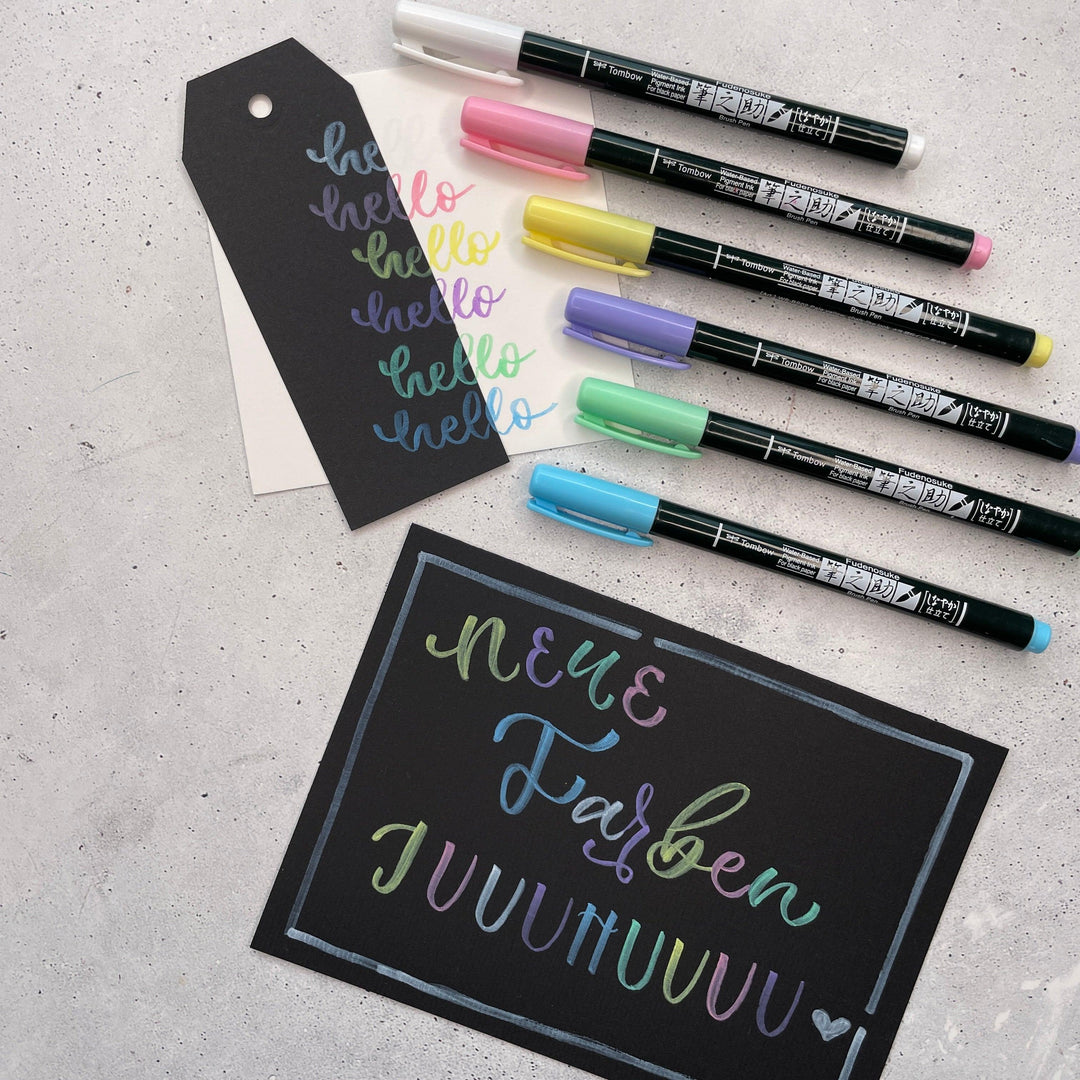 he
hello
hello
hello
hello
hello
Tombow
Water-Based
Pigment Ink
For black paper
Fudenosuke
筆之助
Brush Pen
しなやか
仕立て
Tombow
Water-Based
Pigment Ink
For black paper
Fudenosuke
筆之助
Brush Pen
しなやか
仕立て
Tombow
Water-Based
Pigment Ink
For black paper
筆之助
Brush Pen
しなやか
仕立て
Tombow
Water-Based
Pigment Ink
For black paper
Fudenosuke
筆之助
Brush Pen
しなやか
仕立て
Tombow
Water-Based
Pigment Ink
For black paper
Fudenosuke
筆之助
Brush Pen
しなやか
仕立て
Tombow
Water-Based
Pigment Ink
For black paper
Fudenosuke
筆之助
Brush Pen
しなやか
仕立て
NEUE
Farben
JUUUHUUUU